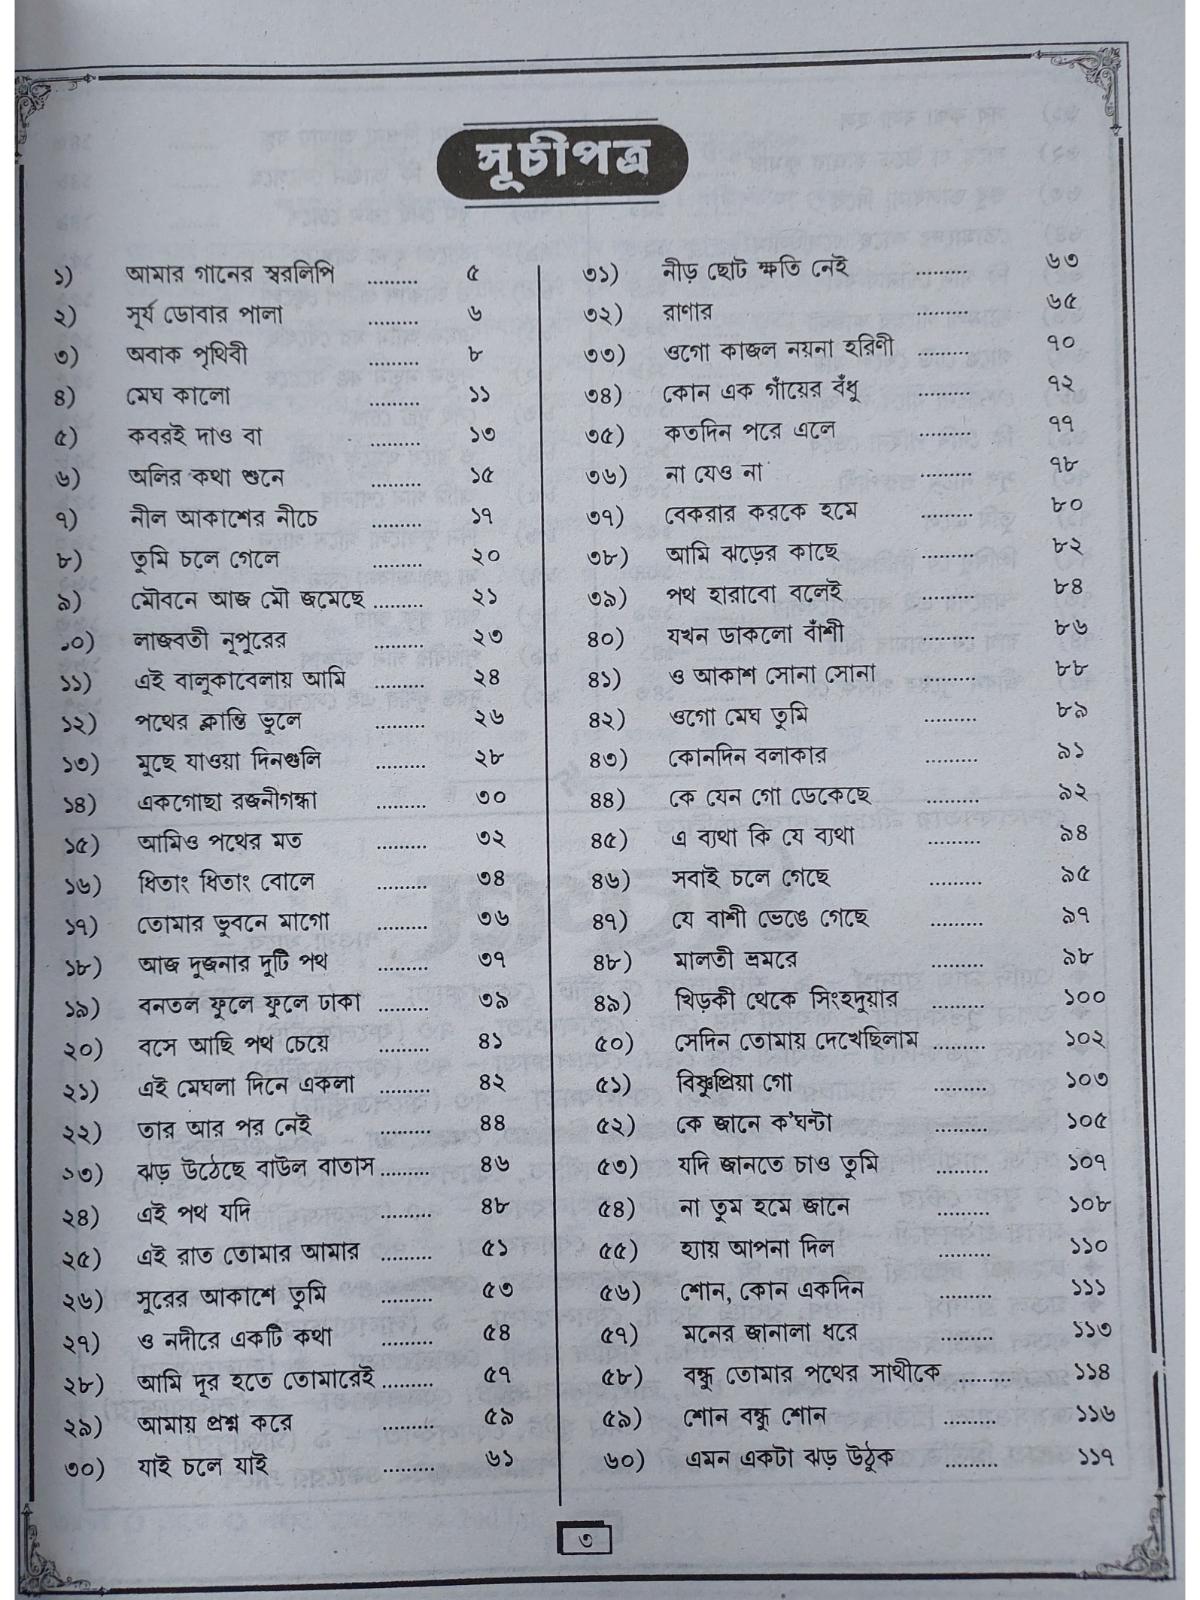 সূচীপত্র
১) আমার গানের স্বরলিপি ......... ৫
২) সূর্য ডোবার পালা ......... ৬
৩) অবাক পৃথিবী ......... ৮
৪) মেঘ কালো ......... ১১
৫) কবরই দাও বা ......... ১৩
৬) অলির কথা শুনে ......... ১৫
৭) নীল আকাশের নীচে ......... ১৭
৮) তুমি চলে গেলে ......... ২০
৯) মৌবনে আজ মৌ জমেছে ......... ২১
১০) লাজবতী নূপুরের ......... ২৩
১১) এই বালুকাবেলায় আমি ......... ২৪
১২) পথের ক্লান্তি ভুলে ......... ২৬
১৩) মুছে যাওয়া দিনগুলি ......... ২৮
১৪) একগোছা রজনীগন্ধা ......... ৩০
১৫) আমিও পথের মত ......... ৩২
১৬) ধিতাং ধিতাং বোলে ......... ৩৪
১৭) তোমার ভুবনে মাগো ......... ৩৬
১৮) আজ দুজনার দুটি পথ ......... ৩৭
১৯) বনতল ফুলে ফুলে ঢাকা ......... ৩৯
২০) বসে আছি পথ চেয়ে ......... ৪১
২১) এই মেঘলা দিনে একলা ......... ৪২
২২) তার আর পর নেই ......... ৪৪
২৩) ঝড় উঠেছে বাউল বাতাস ......... ৪৬
২৪) এই পথ যদি ......... ৪৮
২৫) এই রাত তোমার আমার ......... ৫১
২৬) সুরের আকাশে তুমি ......... ৫৩
২৭) ও নদীরে একটি কথা ......... ৫৪
২৮) আমি দূর হতে তোমারেই ......... ৫৭
২৯) আমায় প্রশ্ন করে ......... ৫৯
৩০) যাই চলে যাই ......... ৬১
৩১) নীড় ছোট ক্ষতি নেই ......... ৬৩
৩২) রাণার ......... ৬৫
৩৩) ওগো কাজল নয়না হরিণী ......... ৭০
৩৪) কোন এক গাঁয়ের বঁধু ......... ৭২
৩৫) কতদিন পরে এলে ......... ৭৭
৩৬) না যেও না ......... ৭৮
৩৭) বেকরার করকে হমে ......... ৮০
৩৮) আমি ঝড়ের কাছে ......... ৮২
৩৯) পথ হারাবো বলেই ......... ৮৪
৪০) যখন ডাকলো বাঁশী ......... ৮৬
৪১) ও আকাশ সোনা সোনা ......... ৮৮
৪২) ওগো মেঘ তুমি ......... ৮৯
৪৩) কোনদিন বলাকার ......... ৯১
৪৪) কে যেন গো ডেকেছে ......... ৯২
৪৫) এ ব্যথা কি যে ব্যথা ......... ৯৪
৪৬) সবাই চলে গেছে ......... ৯৫
৪৭) যে বাশী ভেঙে গেছে ......... ৯৭
৪৮) মালতী ভ্রমরে ......... ৯৮
৪৯) খিড়কী থেকে সিংহদুয়ার ......... ১০০
৫০) সেদিন তোমায় দেখেছিলাম ......... ১০২
৫১) বিষ্ণুপ্রিয়া গো ......... ১০৩
৫২) কে জানে ক'ঘন্টা ......... ১০৫
৫৩) যদি জানতে চাও তুমি ......... ১০৭
৫৪) না তুম হমে জানে ......... ১০৮
৫৫) হ্যায় আপনা দিল ......... ১১০
৫৬) শোন, কোন একদিন ......... ১১১
৫৭) মনের জানালা ধরে ......... ১১৩
৫৮) বন্ধু তোমার পথের সাথীকে ......... ১১৪
৫৯) শোন বন্ধু শোন ......... ১১৬
৬০) এমন একটা ঝড় উঠুক ......... ১১৭
৩